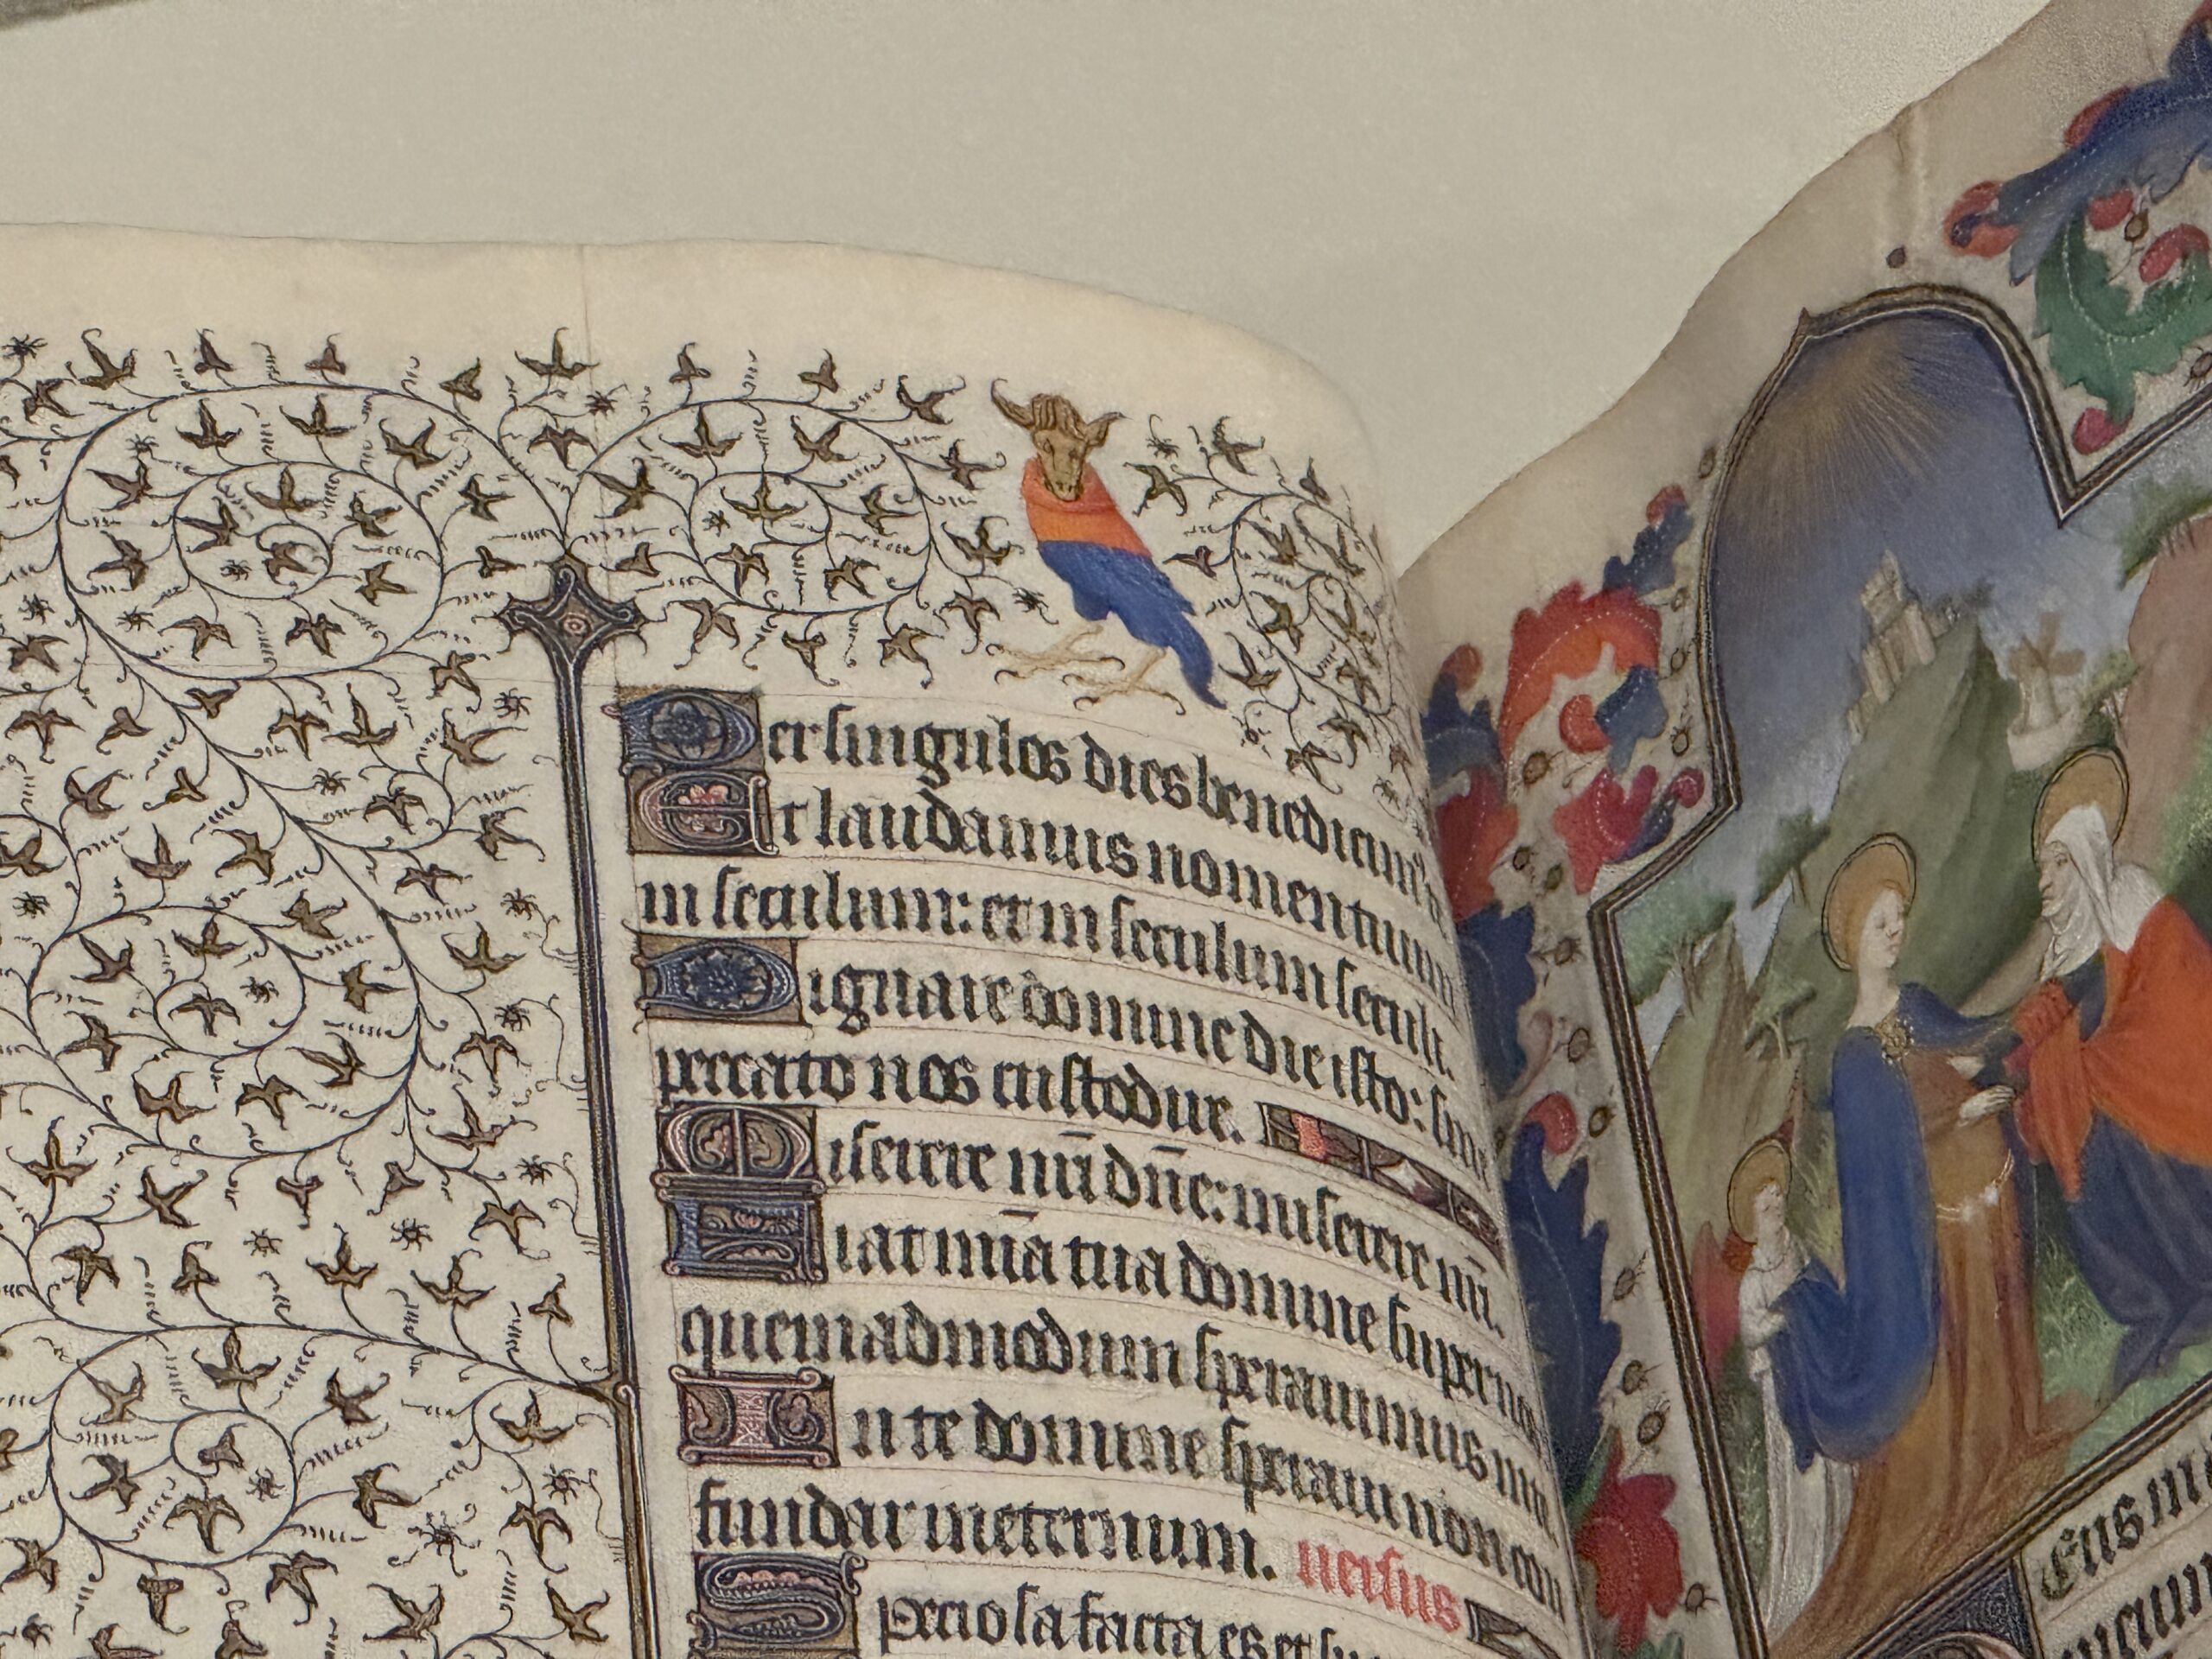 Per singulos dies benedicim'
Et laudamus nomen tuum
in seculum: et in seculum seculi.
Dignare domine die isto: sine
peccato nos custodire.
Miserere nr̄i dn̄e: miserere nr̄i.
Fiat mīa tua domine super nos
quemadmodum sperauimus
In te domine speraui non con
fundar in eternum. uersus
Speciosa facta es et